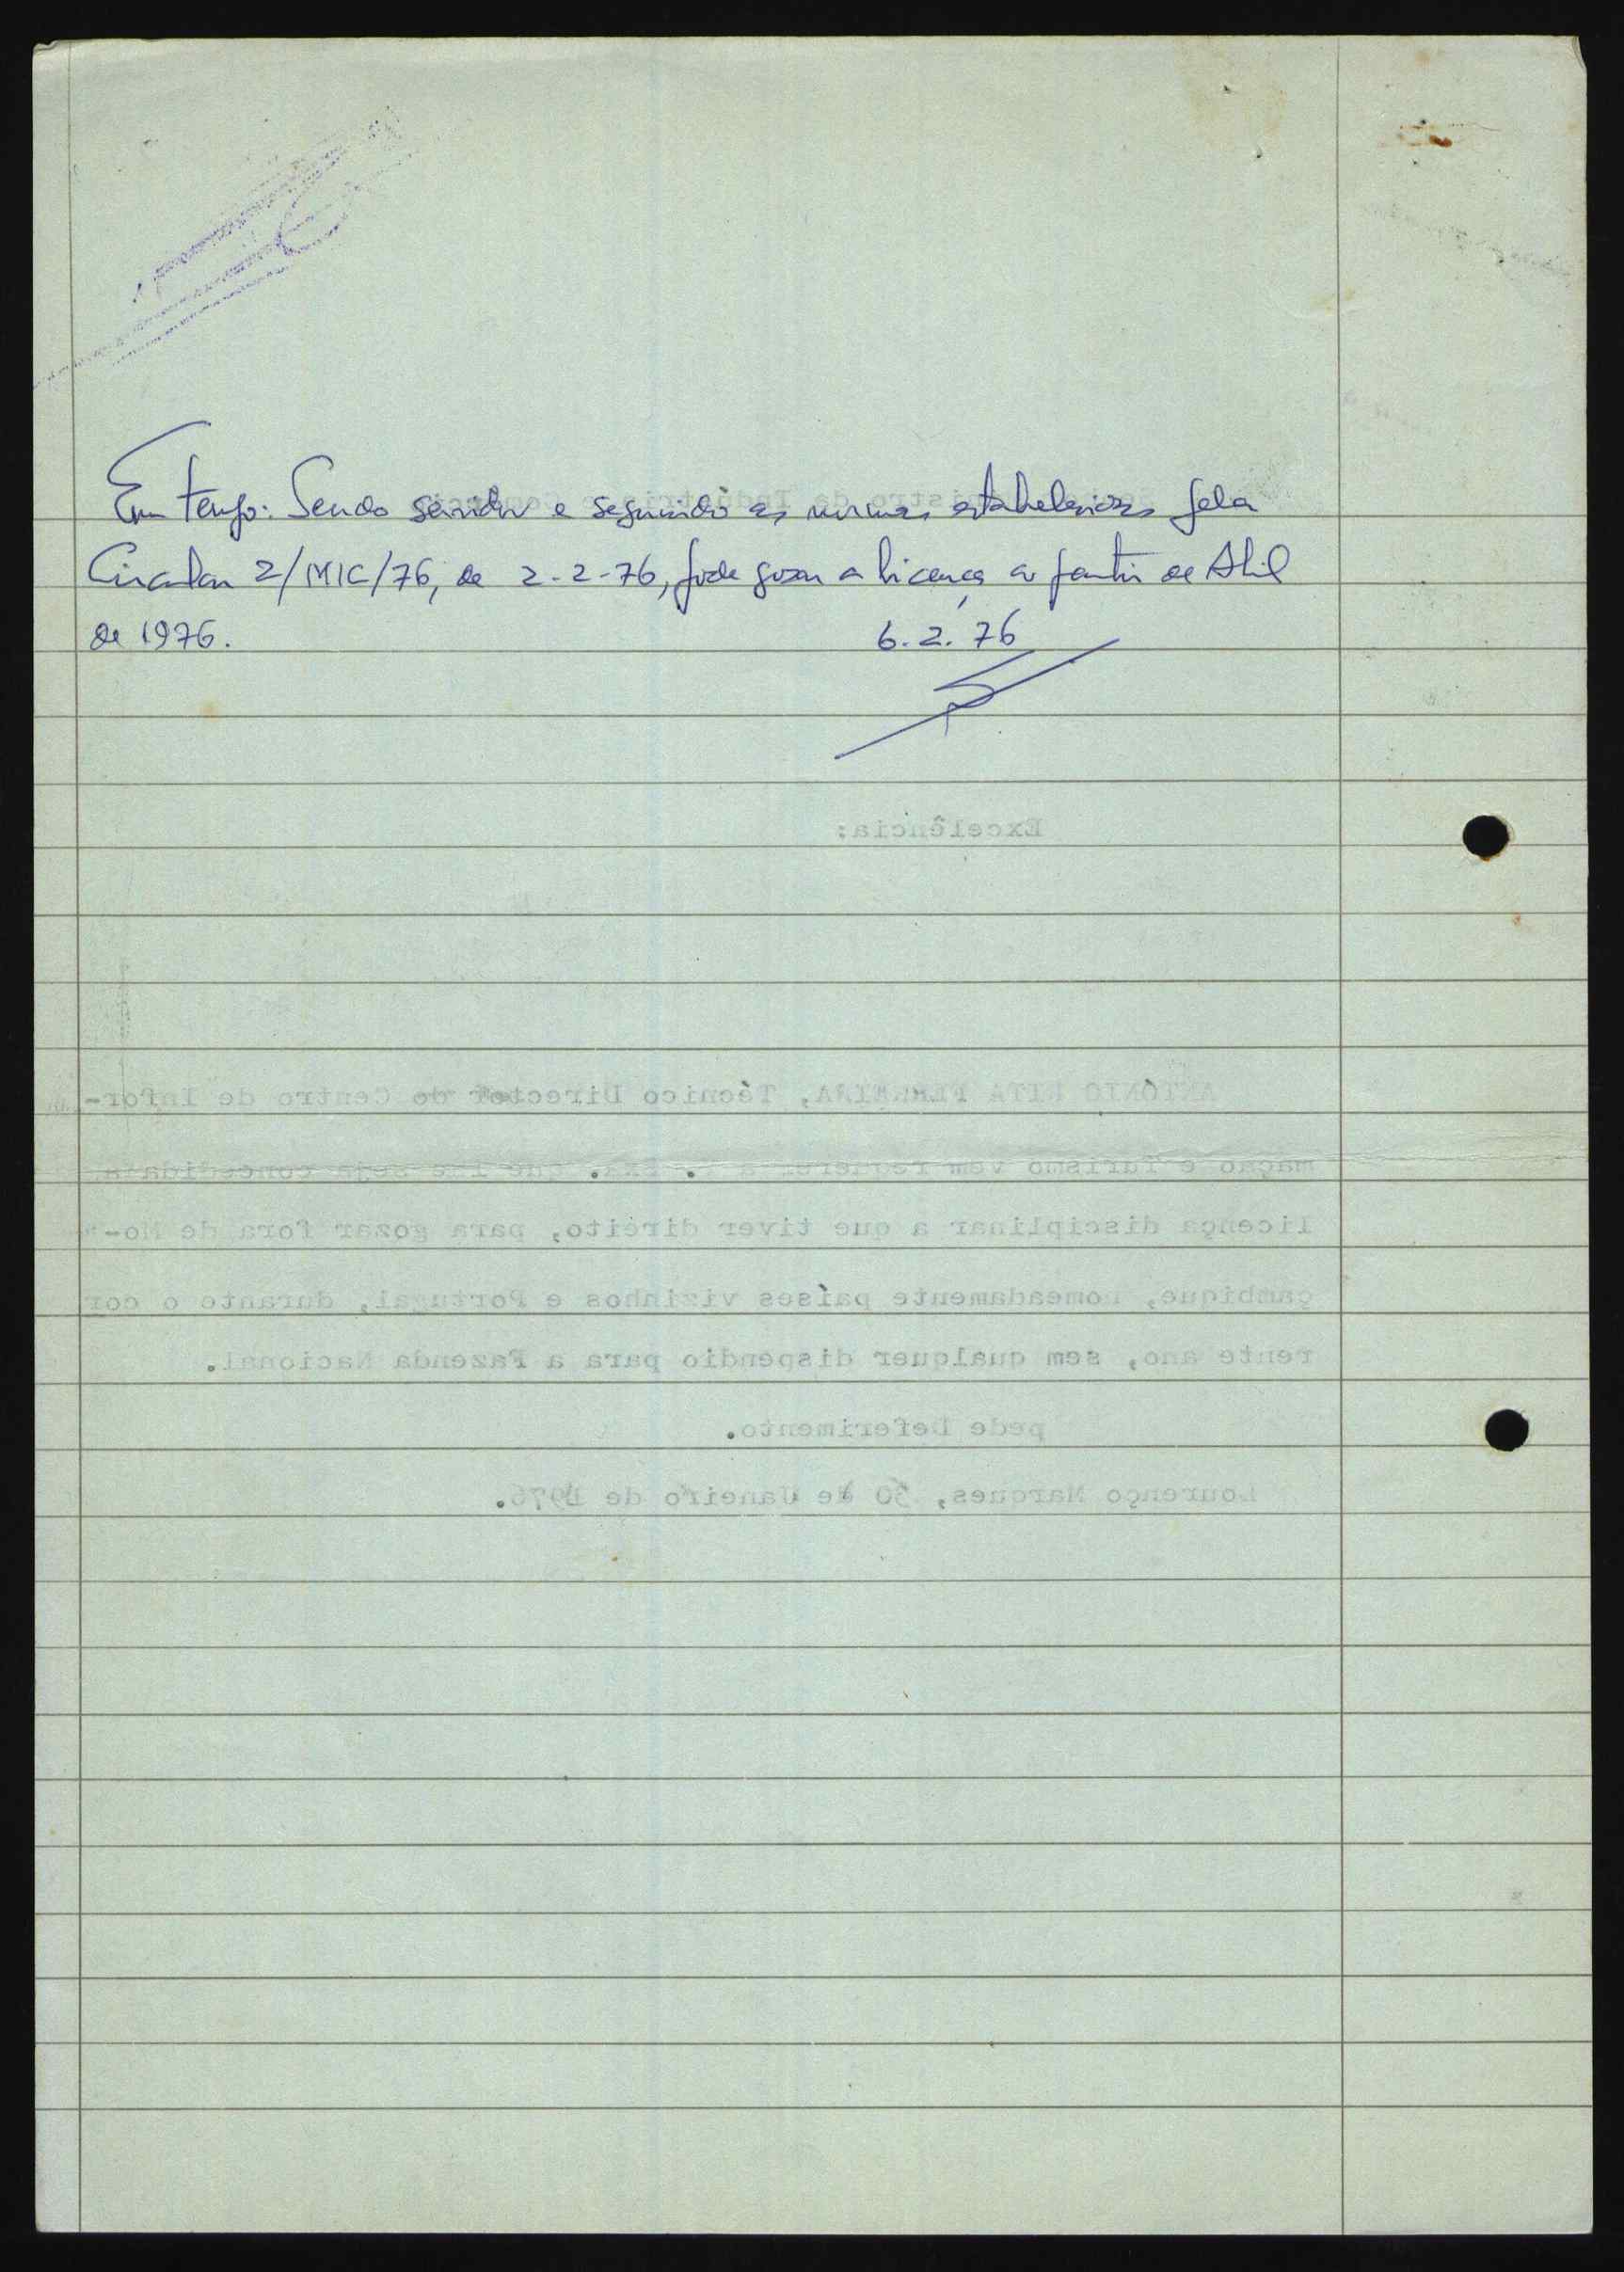 Em tempo: Sendo servidor e seguindo as normas estabelecidas pela
Circular 2/MIC/76, de 2-2-76, pode gozar a licença a partir de Abril
de 1976.
6.2.76
Excelência:
ANTÓNIO RITA FERREIRA, Técnico Director do Centro de Infor-
mação e Turismo vem requerer a V. Exa. que lhe seja concedida a
licença disciplinar a que tiver direito, para gozar fora de Mo-
çambique, nomeadamente países vizinhos e Portugal, durante o cor
rente ano, sem qualquer dispendio para a Fazenda Nacional.
pede Deferimento.
Lourenço Marques, 30 de Janeiro de 1976.